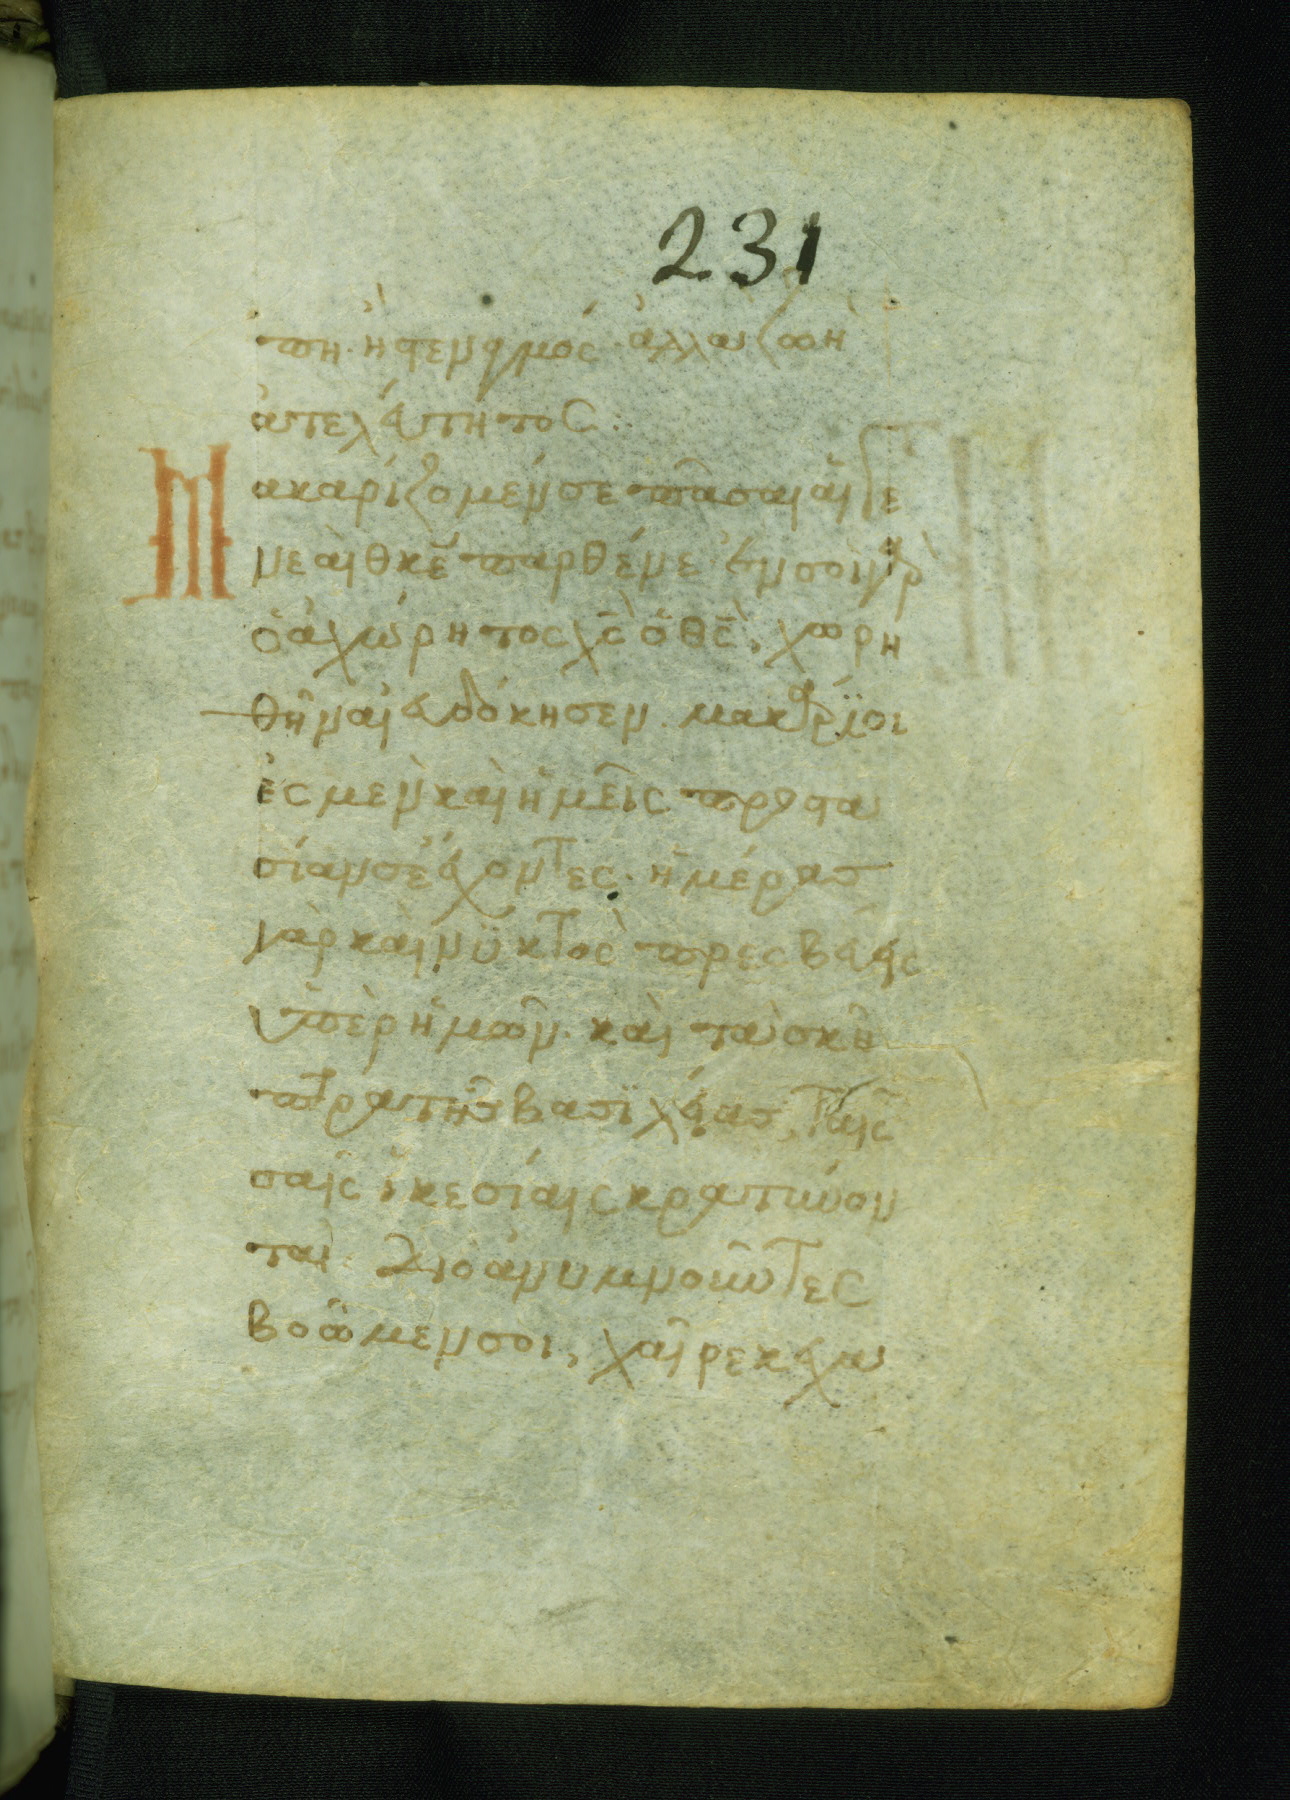 231
πη· ἢ στεναγμός· ἀλλα ζωὴ
ἀτελεύτητος:
Μακαρίζομέν σε πᾶσαι αἱ γε
νεαὶ θκε παρθένε· ἐν σοὶ γὰρ
ὁ ἀχώρητος χς ὁ θς, χωρη
θῆναι εὐδόκησεν· μακάριοι
ἐσμὲν καὶ ἡμεῖς προστα
σίαν σὲ ἔχοντες· ἡμέρας
γὰρ καὶ νϋκτὸς πρεσβεύεις
ὑπὲρ ἡμῶν· καὶ τα σκῆ
πτρα τῆς βασιλείας, ταῖς
σαῖς ἱκεσίαις κρατύνον
ται· διὸ ἀνυμνοῦντες
βοῶμεν σοι, χαῖρε κεχα